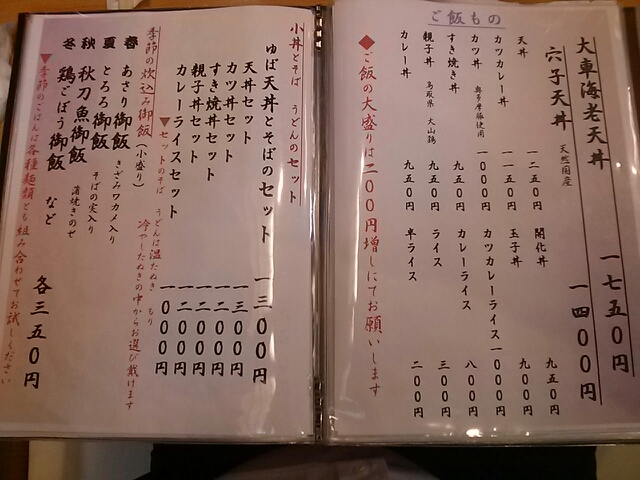 ご飯もの
大車海老天丼 一七五〇円
穴子天丼 天然国産 一四〇〇円
天丼 一二五〇円
カツカレー丼 一一五〇円
カツ丼 奥多摩豚使用 一〇〇〇円
すき焼き丼 九五〇円
親子丼 鳥取県 大山鶏 九五〇円
カレー丼 九五〇円
開化丼 九五〇円
玉子丼 九〇〇円
カツカレーライス 一〇〇〇円
カレーライス 八〇〇円
ライス 三〇〇円
半ライス 二〇〇円
◆ご飯の大盛りは二〇〇円増しにてお願いします
小丼とそば うどんのセット
ゆば天丼とそばのセット 一三〇〇円
天丼セット 一三〇〇円
カツ丼セット 一二〇〇円
すき焼丼セット 一二〇〇円
親子丼セット 一二〇〇円
カレーライスセット 一〇〇〇円
▼セットのそば うどんは温たぬき もり
冷やしたぬきの中からお選び戴けます
季節の炊込み御飯(小盛り)
春 あさり御飯 きざみワカメ入り
夏 とろろ御飯 そばの実入り
秋 秋刀魚御飯 蒲焼きのせ
冬 鶏ごぼう御飯 など
各三五〇円
▼季節のごはんは各種麺類とも組み合わせてお試しください